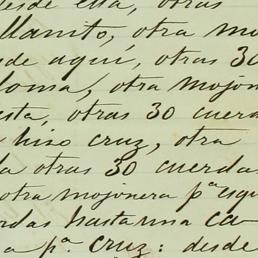 desde ella, otras
llanito, otra mo
de aquí, otras 30
loma, otra mojon
esta, otras 30 cuerd
hiso cruz, otra
a otras 30 cuerdas
otra mojonera pª. esqu
rdas hasta una ca
a pª. cruz: desde